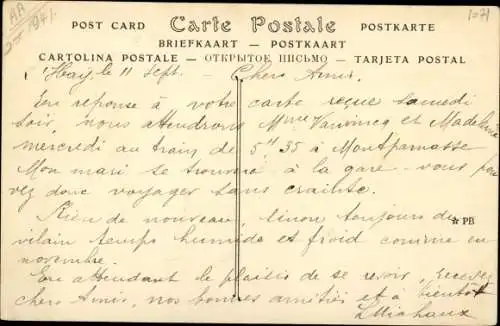 AA
1941.
1071
POST CARD Carte Postale POSTKARTE
BRIEFKAART — POSTKAART
CARTOLINA POSTALE — ОТКРЫТОЕ ПИСЬМО — TARJETA POSTAL
l'Hay, le 11 Sept. - Chers Amis.
En réponse à votre carte reçue samedi
soir, nous attendrons Mme et Madeleine
mercredi au train de 5H 35 à Montparnasse
Mon mari se trouvera à la gare - vous pou
vez donc voyager sans crainte.
Rien de nouveau, sinon toujours du
★ PB
vilain temps humide et froid comme en
novembre.
En attendant le plaisir de se revoir, recevez
chers Amis, nos bonnes amitiés et à bientôt